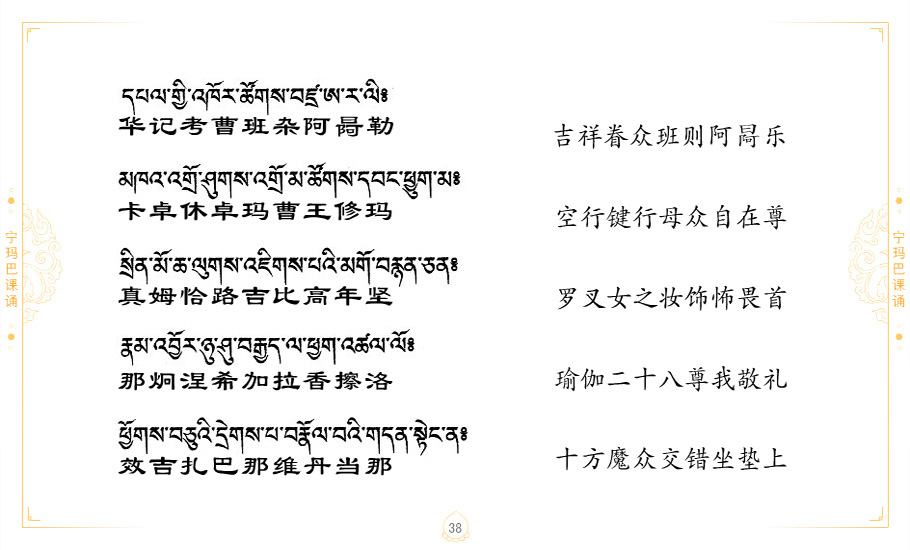 宁玛巴课诵
དཔལ་གྱི་འཁོར་ཚོགས་བཛྲ་ཨ་ར་ལི༔
华记考曹班杂阿呙勒
吉祥眷众班则阿呙乐
མཁའ་འགྲོ་ཤུགས་འགྲོ་མ་ཚོགས་དབང་ཕྱུག་མ༔
卡卓休卓玛曹王修玛
空行键行母众自在尊
སྲིན་མོ་ཆ་ལུགས་འཇིགས་པའི་མགོ་བརྙན་ཅན༔
真姆恰路吉比高年坚
罗叉女之妆饰怖畏首
རྣམ་འབྱོར་ཉུ་ཤུ་བརྒྱད་ལ་ཕྱག་འཚལ་ལོ༔
那炯涅希加拉香擦洛
瑜伽二十八尊我敬礼
ཕྱོགས་བཅུའི་དྲེགས་པ་བརྣོལ་བའི་གདན་སྟེང་ན༔
效吉扎巴那维丹当那
十方魔众交错坐垫上
宁玛巴课诵
38